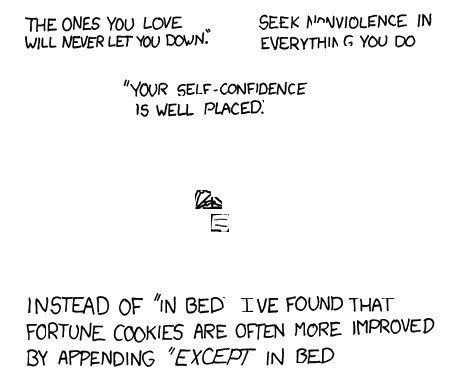 THE ONES YOU LOVE
WILL NEVER LET YOU DOWN."
SEEK NONVIOLENCE IN
EVERYTHING YOU DO
"YOUR SELF-CONFIDENCE
IS WELL PLACED.
INSTEAD OF "IN BED I'VE FOUND THAT
FORTUNE COOKIES ARE OFTEN MORE IMPROVED
BY APPENDING "EXCEPT IN BED